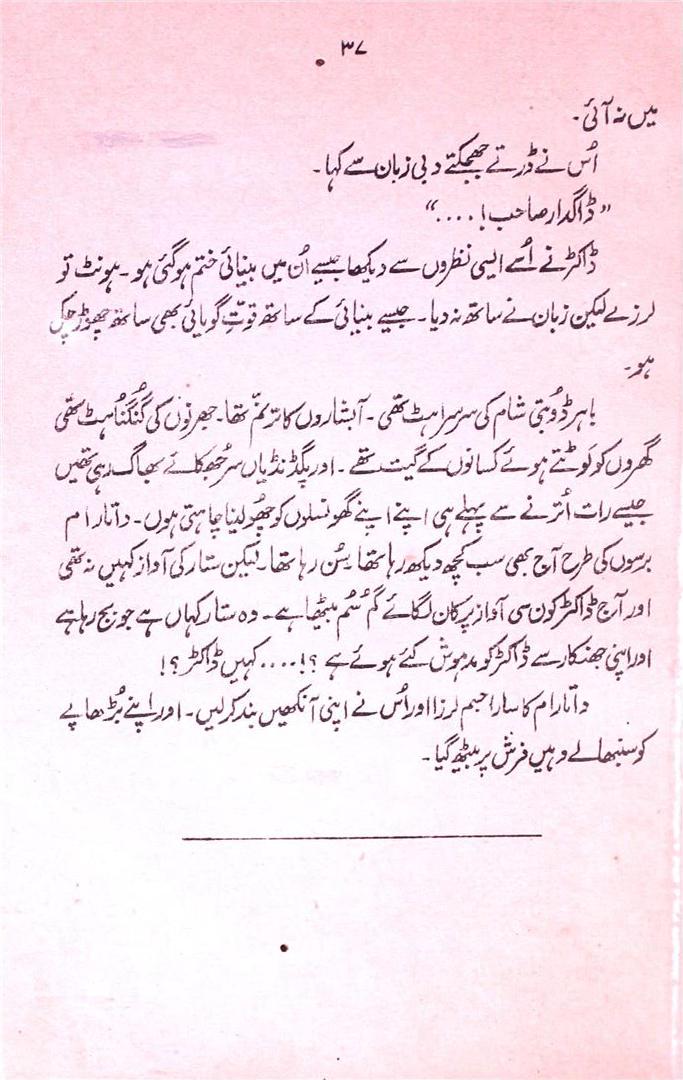 ۳۷
میں نہ آئی۔
اُس نے ڈرتے جھجکتے دبی زبان سے کہا۔
”ڈاگدار صاحب!....“
ڈاکٹر نے اُسے ایسی نظروں سے دیکھا جیسے اُن میں بینائی ختم ہو گئی ہو۔ ہونٹ تو
لرزے لیکن زبان نے ساتھ نہ دیا۔ جیسے بینائی کے ساتھ قوتِ گویائی بھی ساتھ چھوڑ چکی
ہو۔
باہر ڈوبتی شام کی سرسراہٹ تھی۔ آبشاروں کا ترنم تھا۔ جھرنوں کی گُنگُناہٹ تھی
گھروں کو لَوٹتے ہوئے کسانوں کے گیت تھے۔ اور پگڈنڈیاں سر جُھکائے بھاگ رہی تھیں
جیسے رات اُترنے سے پہلے ہی اپنے اپنے گھونسلوں کو چُھو لینا چاہتی ہوں۔ داتا رام
برسوں کی طرح آج بھی سب کچھ دیکھ رہا تھا سُن رہا تھا۔ لیکن ستار کی آواز کہیں نہ تھی
اور آج ڈاکٹر کون سی آواز پر کان لگائے گم سُم بیٹھا ہے۔ وہ ستار کہاں ہے جو بج رہا ہے
اور اپنی جھنکار سے ڈاکٹر کو مدہوش کئے ہوئے ہے؟!.... کہیں ڈاکٹر؟!
داتا رام کا سارا جسم لرزا اور اُس نے اپنی آنکھیں بند کر لیں۔ اور اپنے بُڑھاپے
کو سنبھالے وہیں فرش پر بیٹھ گیا۔